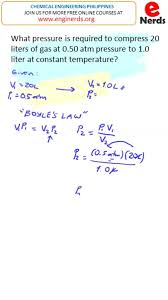 CHEMICAL ENGINEERING PHILIPPINES
JOIN US FOR MORE FREE ONLINE COURSES AT
www.enginerds.org
e Nerds
What pressure is required to compress 20
liters of gas at 0.50 atm pressure to 1.0
liter at constant temperature?
Given:
V₁ = 20L → V₂ = 1.0L
P₁ = 0.5 atm P₂ =
"BOYLE'S LAW"
V₁P₁ = V₂P₂ P₂ = P₁V₁
V₂
P₂ = (0.5 atm)(20L)
1.0L
P